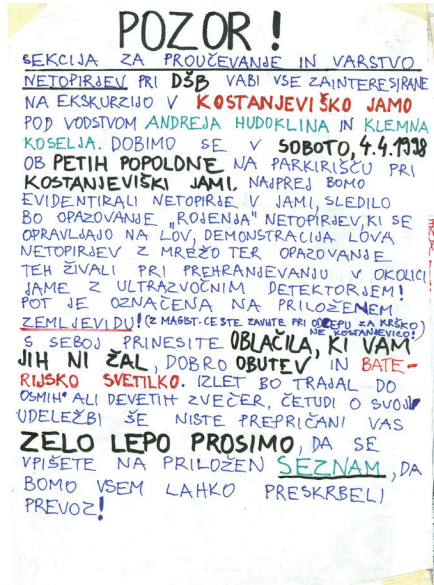 POZOR!
SEKCIJA ZA PROUČEVANJE IN VARSTVO
NETOPIRJEV PRI DŠB VABI VSE ZAINTERESIRANE
NA EKSKURZIJO V KOSTANJEVIŠKO JAMO
POD VODSTVOM ANDREJA HUDOKLINA IN KLEMNA
KOSELJA. DOBIMO SE V SOBOTO, 4.4.1998
OB PETIH POPOLDNE NA PARKIRIŠČU PRI
KOSTANJEVIŠKI JAMI. NAJPREJ BOMO
EVIDENTIRALI NETOPIRJE V JAMI, SLEDILO
BO OPAZOVANJE "ROJENJA" NETOPIRJEV, KI SE
OPRAVLJAJO NA LOV, DEMONSTRACIJA LOVA
NETOPIRJEV Z MREŽO TER OPAZOVANJE
TEH ŽIVALI PRI PREHRANJEVANJU V OKOLICI
JAME Z ULTRAZVOČNIM DETEKTORJEM!
POT JE OZNAČENA NA PRILOŽENEM
ZEMLJEVIDU! (Z MAGIST. CESTE ZAVIJTE PRI ODCEPU ZA KRŠKO)
NE KOSTANJEVICO!
S SEBOJ PRINESITE OBLAČILA, KI VAM
JIH NI ŽAL, DOBRO OBUTEV IN BATE-
RIJSKO SVETILKO. IZLET BO TRAJAL DO
OSMIH ALI DEVETIH ZVEČER, ČETUDI O SVOJI
UDELEŽBI ŠE NISTE PREPRIČANI VAS
ZELO LEPO PROSIMO, DA SE
VPIŠETE NA PRILOŽEN SEZNAM, DA
BOMO VSEM LAHKO PRESKRBELI
PREVOZ!